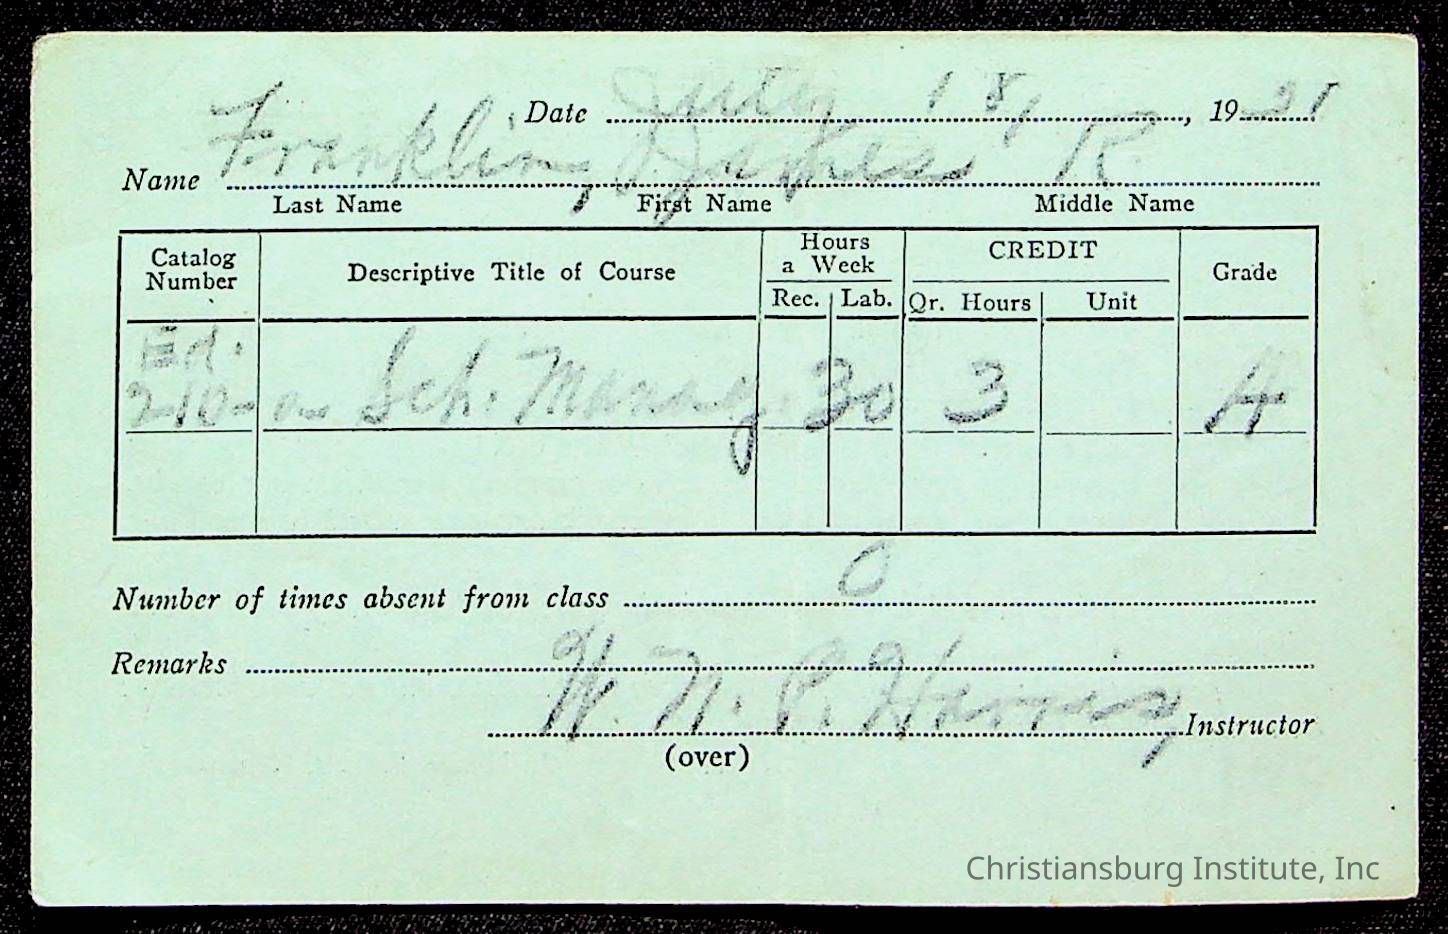 Date July 18, 1931
Name Franklin, James R.
Last Name First Name Middle Name
Catalog Number Descriptive Title of Course Hours a Week CREDIT Grade
Rec. Lab. Qr. Hours Unit
Ed.
210- Sch. Manag. 30 3 A
Number of times absent from class 0
Remarks
W. N. P. Harris, Instructor
(over)
Christiansburg Institute, Inc